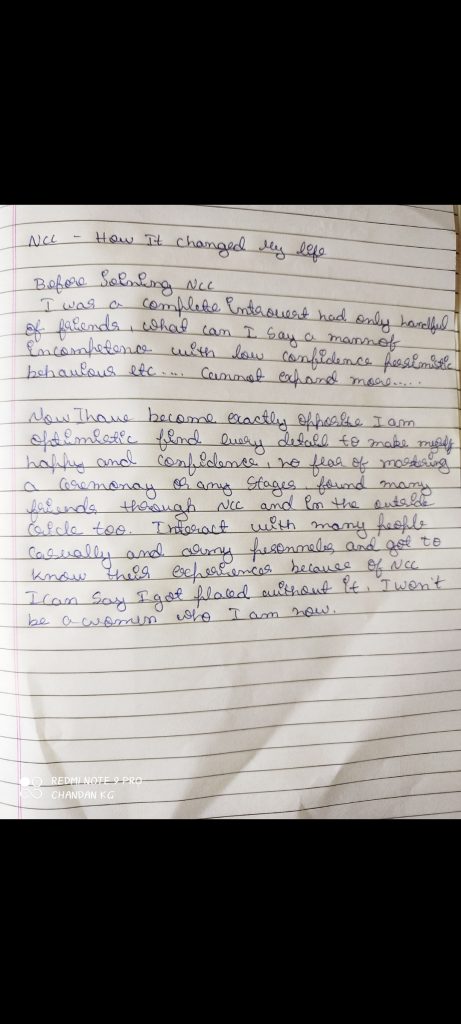 NCC - How It changed My life
Before Joining NCC
I was a complete Introvert had only handful
of friends, what can I say a mannof
incompetence with low confidence pessimistic
behaviour etc.... Cannot expand more.....
Now I have become exactly opposite I am
optimistic find every detail to make myself
happy and confidence, no fear of mastering
a ceremonay or any stages, found many
friends through NCC and in the outside
circle too. Interact with many people
casually and army personneles and got to
know their experiences because of NCC
I can say I got placed without it, I won't
be a women who I am now.
REDMI NOTE 9 PRO
CHANDAN KG